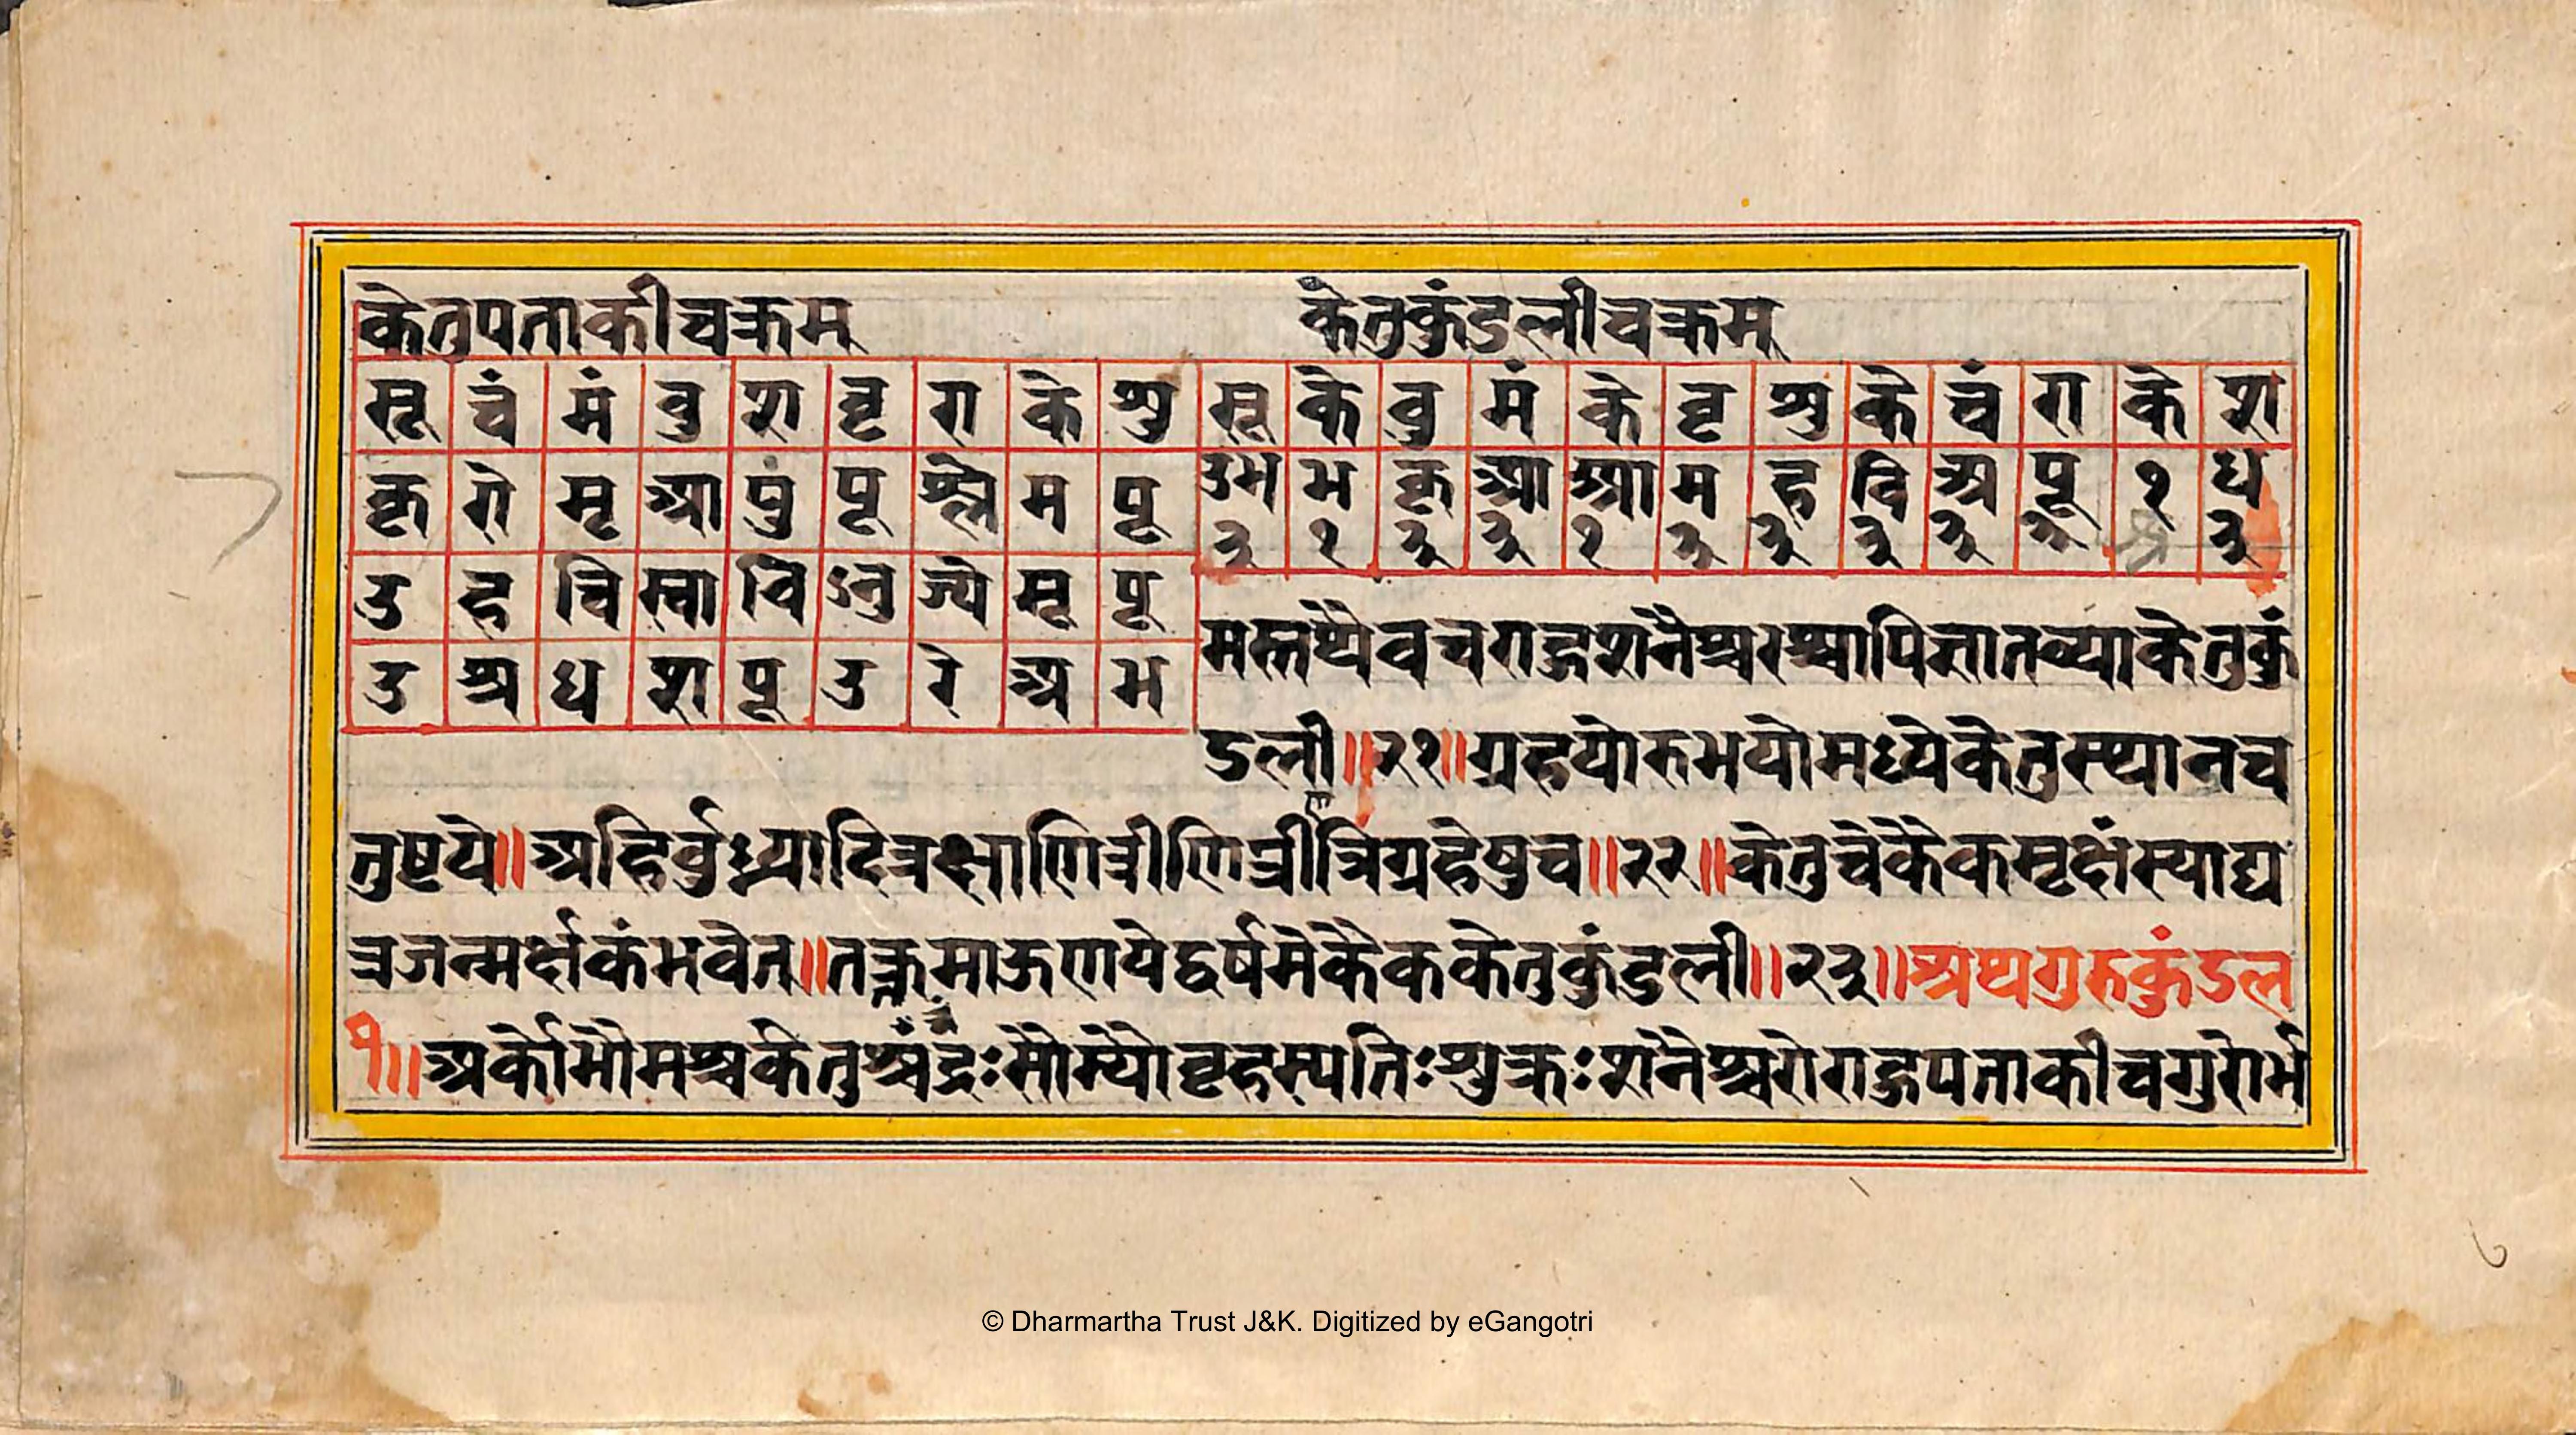 केतुपताकीचक्रम्
सू चं मं बु श बृ रा के शु
कृ रो मृ आ पु पू श्ले म पू
उ ह चि स्वा वि ऽनु ज्ये मू पू
उ श्र ध श पू उ रे अ भ
केतुकुंडलीचक्रम्
सू के बु मं के बृ शु के चं रा के श
उभ भ कृ आ आ म ह वि अ पू १ ध
३ १ ३ ३ १ ३ ३ ३ ३ ३ श्र ३
मस्तथैवचराहुशनैश्चरश्चापिज्ञातव्याकेतुकुं
डली॥२१॥ग्रहयोरुभयोर्मध्येकेतुस्थानच
तुष्टये॥अहिर्बुध्न्यादिऋक्षाणित्रीणित्रीणित्रिग्रहेषुच॥२२॥केतुचेकैकमृक्षंस्याद्य
त्रजन्मर्क्षकंभवेत्॥तत्क्रमाद्गणयेद्वर्षमेकैककेतुकुंडली॥२३॥अथगुरुकुंडल
ी॥अर्कोभौमश्चकेतुश्चंद्रःसौम्यौबृहस्पतिःशुक्रःशनैश्चरोराहुपताकीचगुरोर्भ
© Dharmartha Trust J&K. Digitized by eGangotri